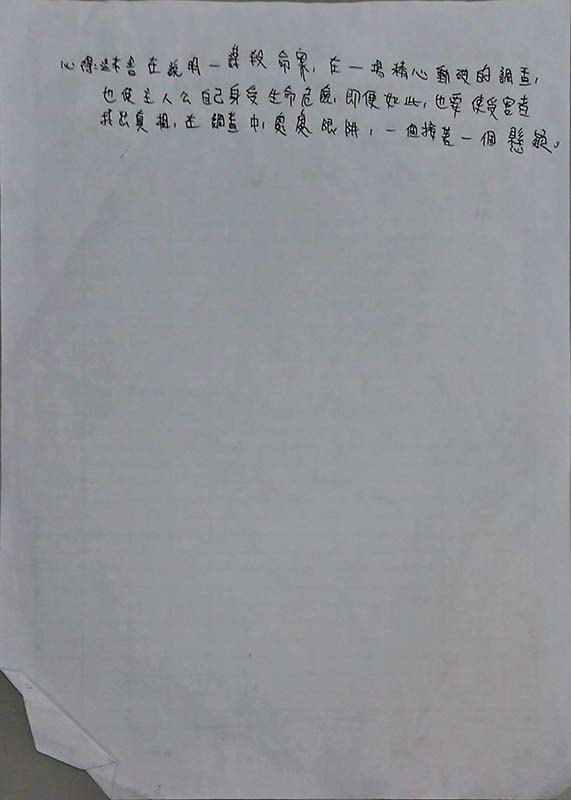 心得:這本書在說明一謀殺命案,在一場精心動魄的調查,
也使主人公自己身受生命危險,即便如此,也要使受害者
找出真相,在調查中,處處陷阱,一個接著一個懸疑。